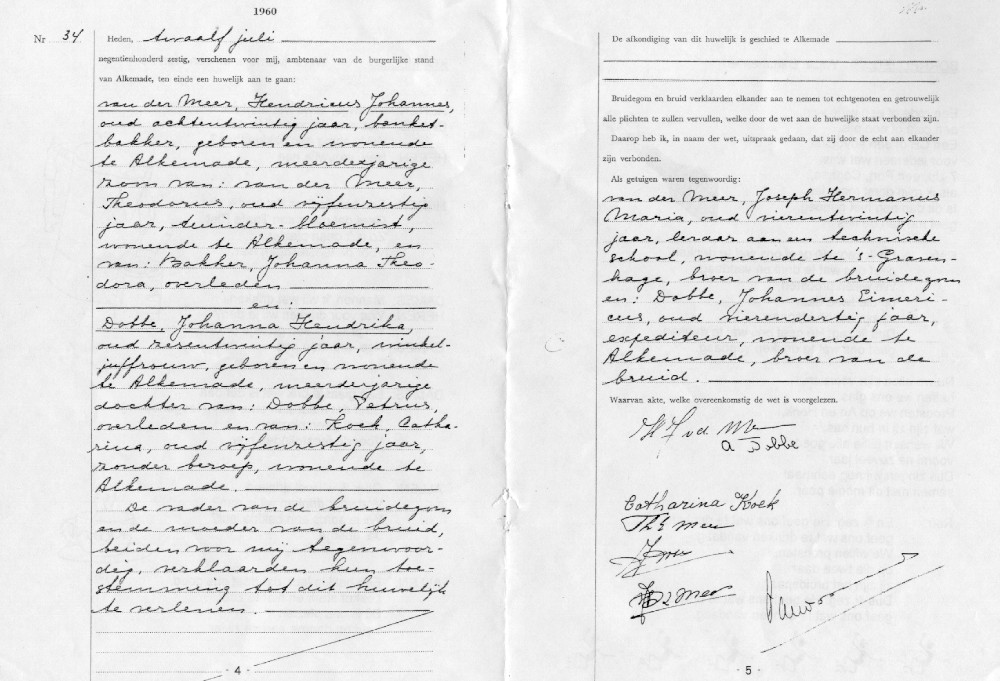 1960
Nr 34
Heden, twaalf juli
negentienhonderd zestig, verschenen voor mij, ambtenaar van de burgerlijke stand
van Alkemade, ten einde een huwelijk aan te gaan:
van der Meer, Hendricus Johannes,
oud achtentwintig jaar, banket-
bakker, geboren en wonende
te Alkemade, meerderjarige
zoon van: van der Meer,
Theodorus, oud vijfenzestig
jaar, tuinder-bloemist,
wonende te Alkemade, en
van: Bakker, Johanna Theo-
dora, overleden
en:
Dobbe, Johanna Hendrika,
oud zesentwintig jaar, winkel-
juffrouw, geboren en wonende
te Alkemade, meerderjarige
dochter van: Dobbe, Petrus,
overleden en van: Koek, Catha-
rina, oud vijfenzestig jaar,
zonder beroep, wonende te
Alkemade.
De vader van de bruidegom
en de moeder van de bruid,
beiden voor mij tegenwoor-
dig, verklaarden hun toe-
stemming tot dit huwelijk
te verlenen.
- 4 -
De afkondiging van dit huwelijk is geschied te Alkemade
Bruidegom en bruid verklaarden elkander aan te nemen tot echtgenoten en getrouwelijk
alle plichten te zullen vervullen, welke door de wet aan de huwelijke staat verbonden zijn.
Daarop heb ik, in naam der wet, uitspraak gedaan, dat zij door de echt aan elkander
zijn verbonden.
Als getuigen waren tegenwoordig:
van der Meer, Joseph Hermanus
Maria, oud vierentwintig
jaar, leraar aan een technische
school, wonende te 's-Graven-
hage, broer van de bruidegom
en: Dobbe, Johannes Eimeri-
cus, oud vierendertig jaar,
expediteur, wonende te
Alkemade, broer van de
bruid.
Waarvan akte, welke overeenkomstig de wet is voorgelezen.
H J vd Meer
A Dobbe
Catharina Koek
Th vd Meer
- 5 -